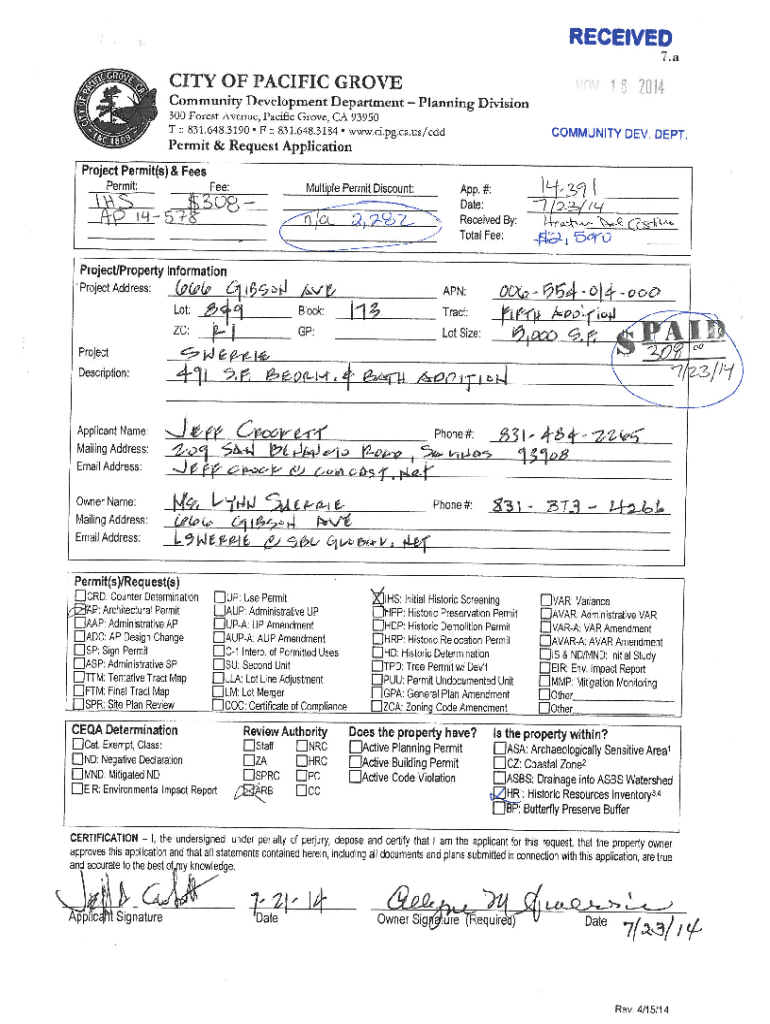 RECEIVED
7.a
NOV 18 2014
COMMUNITY DEV. DEPT.
CITY OF PACIFIC GROVE
Community Development Department – Planning Division
300 Forest Avenue, Pacific Grove, CA 93950
T :: 831.648.3190 • F :: 831.648.3184 • www.ci.pg.ca.us/cdd
Permit & Request Application
Project Permit(s) & Fees
Permit: Fee: Multiple Permit Discount: App. #: 14-391
IHS $308- Date: 7/23/14
AP 14-578 n/a 2,282 Received By:
Total Fee: $2,590
Project/Property Information
Project Address: 666 GIBSON AVE APN: 006-554-014-000
Lot: 849 Book: 173 Tract: FIFTH ADDITION
ZC: R-1 GP: Lot Size: S.F.
PAID
308 00
7/23/14
Project SWERRIE
Description: 491 S.F. BEDRM. & BATH ADDITION
Applicant Name: JEFF CROCKETT Phone #: 831-484-2265
Mailing Address: 209 SAN BENANCIO ROAD, SALINAS 93908
Email Address: JEFF CROCK @ COMCAST.NET
Owner Name: MS. LYNN SWERRIE Phone #: 831-373-4266
Mailing Address: 666 GIBSON AVE
Email Address: LSWERRIE @ SBC GLOBAL.NET
Permit(s)/Request(s)
CRD: Counter Determination UP: Use Permit IHS: Initial Historic Screening VAR: Variance
AP: Architectural Permit AUP: Administrative UP HPP: Historic Preservation Permit AVAR: Administrative VAR
AAP: Administrative AP UP-A: UP Amendment HDP: Historic Demolition Permit VAR-A: VAR Amendment
ADC: AP Design Change AUP-A: AUP Amendment HRP: Historic Relocation Permit AVAR-A: AVAR Amendment
SP: Sign Permit C-1 Interp. of Permitted Uses HD: Historic Determination IS & ND/MND: Initial Study
ASP: Administrative SP SU: Second Unit TPD: Tree Permit w/ Dev't EIR: Env. Impact Report
TTM: Tentative Tract Map LLA: Lot Line Adjustment PUU: Permit Undocumented Unit MMP: Mitigation Monitoring
FTM: Final Tract Map LM: Lot Merger GPA: General Plan Amendment Other
SPR: Site Plan Review COC: Certificate of Compliance ZCA: Zoning Code Amendment Other
CEQA Determination Review Authority Does the property have? Is the property within?
Cat. Exempt, Class: Staff NRC Active Planning Permit ASA: Archaeologically Sensitive Area1
ND: Negative Declaration ZA HRC Active Building Permit CZ: Coastal Zone2
MND: Mitigated ND SPRC PC Active Code Violation ASBS: Drainage into ASBS Watershed
EIR: Environmental Impact Report ARB CC HRI: Historic Resources Inventory3,4
BP: Butterfly Preserve Buffer
CERTIFICATION – I, the undersigned, under penalty of perjury, depose and certify that I am the applicant for this request, that the property owner
approves this application and that all statements contained herein, including all documents and plans submitted in connection with this application, are true
and accurate to the best of my knowledge.
7-21-14
Applicant Signature Date Owner Signature (Required) Date 7/23/14
Rev. 4/15/14